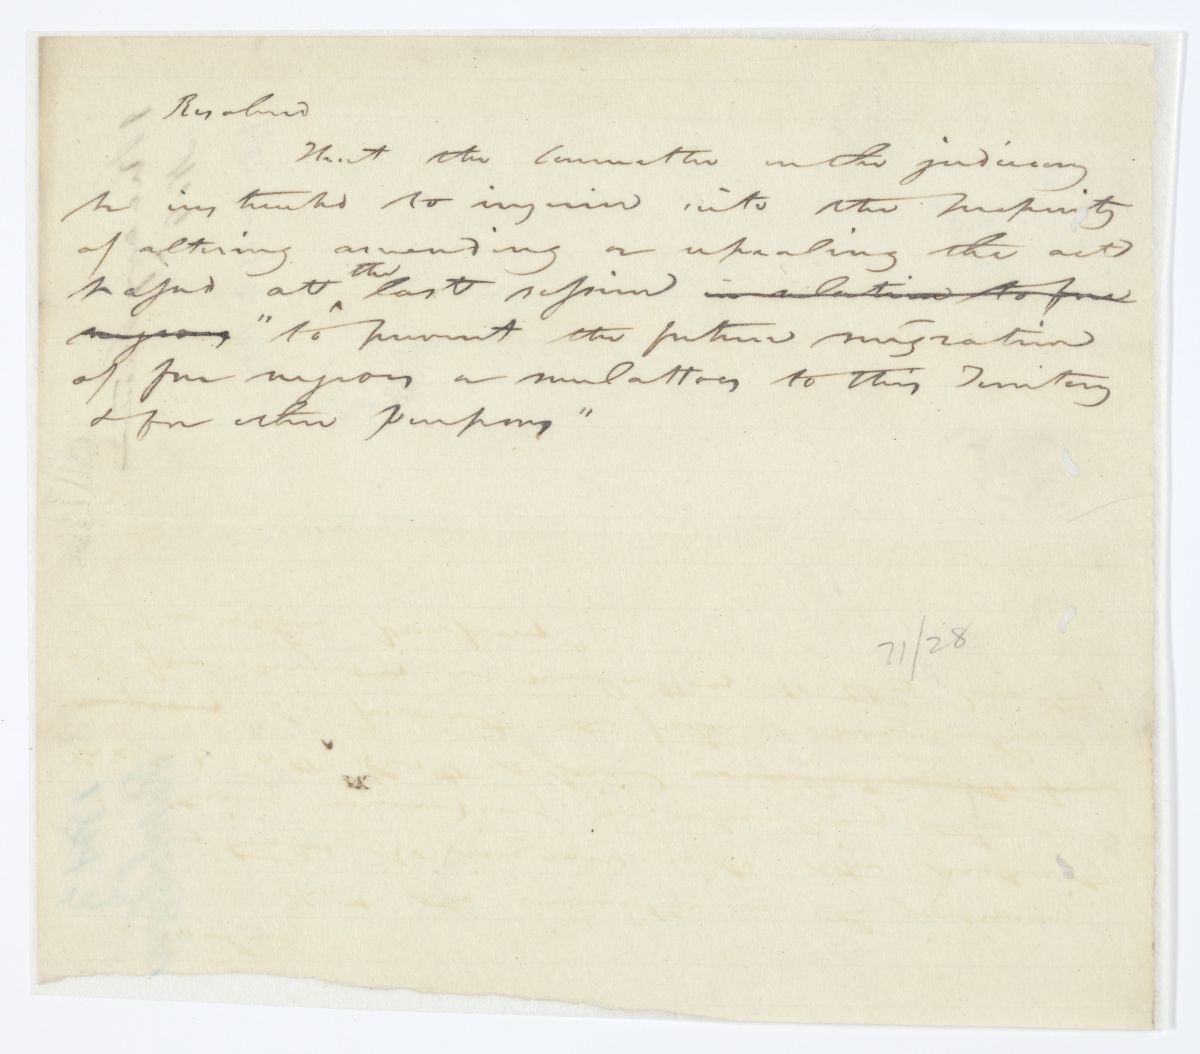 Resolved
That the Committee on the judiciary
be instructed to inquire into the propriety
of altering amending or repealing the act
passed at the last session in relation to free
negroes "to prevent the future migration
of free negroes or mulattoes to this Territory
& for other purposes"
71/28